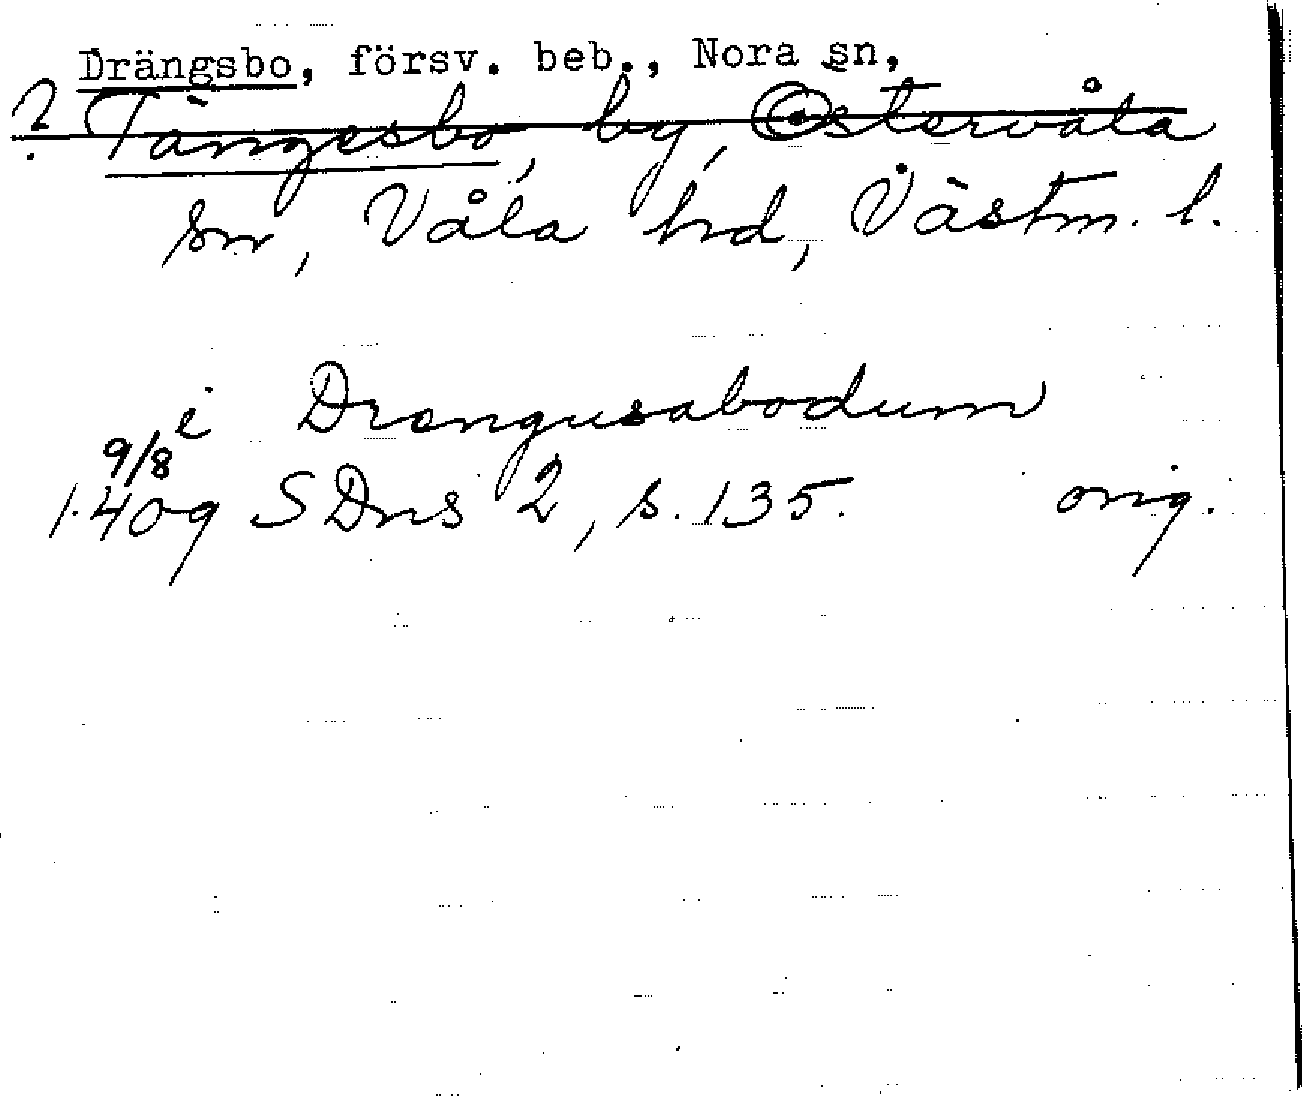 Drängsbo, försv. beb., Nora sn,
? Tängesbo, by, Östervåla
sn, Våla hd, Västm. l.
i Drengusabodum
9/8
1409 SDns 2, s. 135. orig.